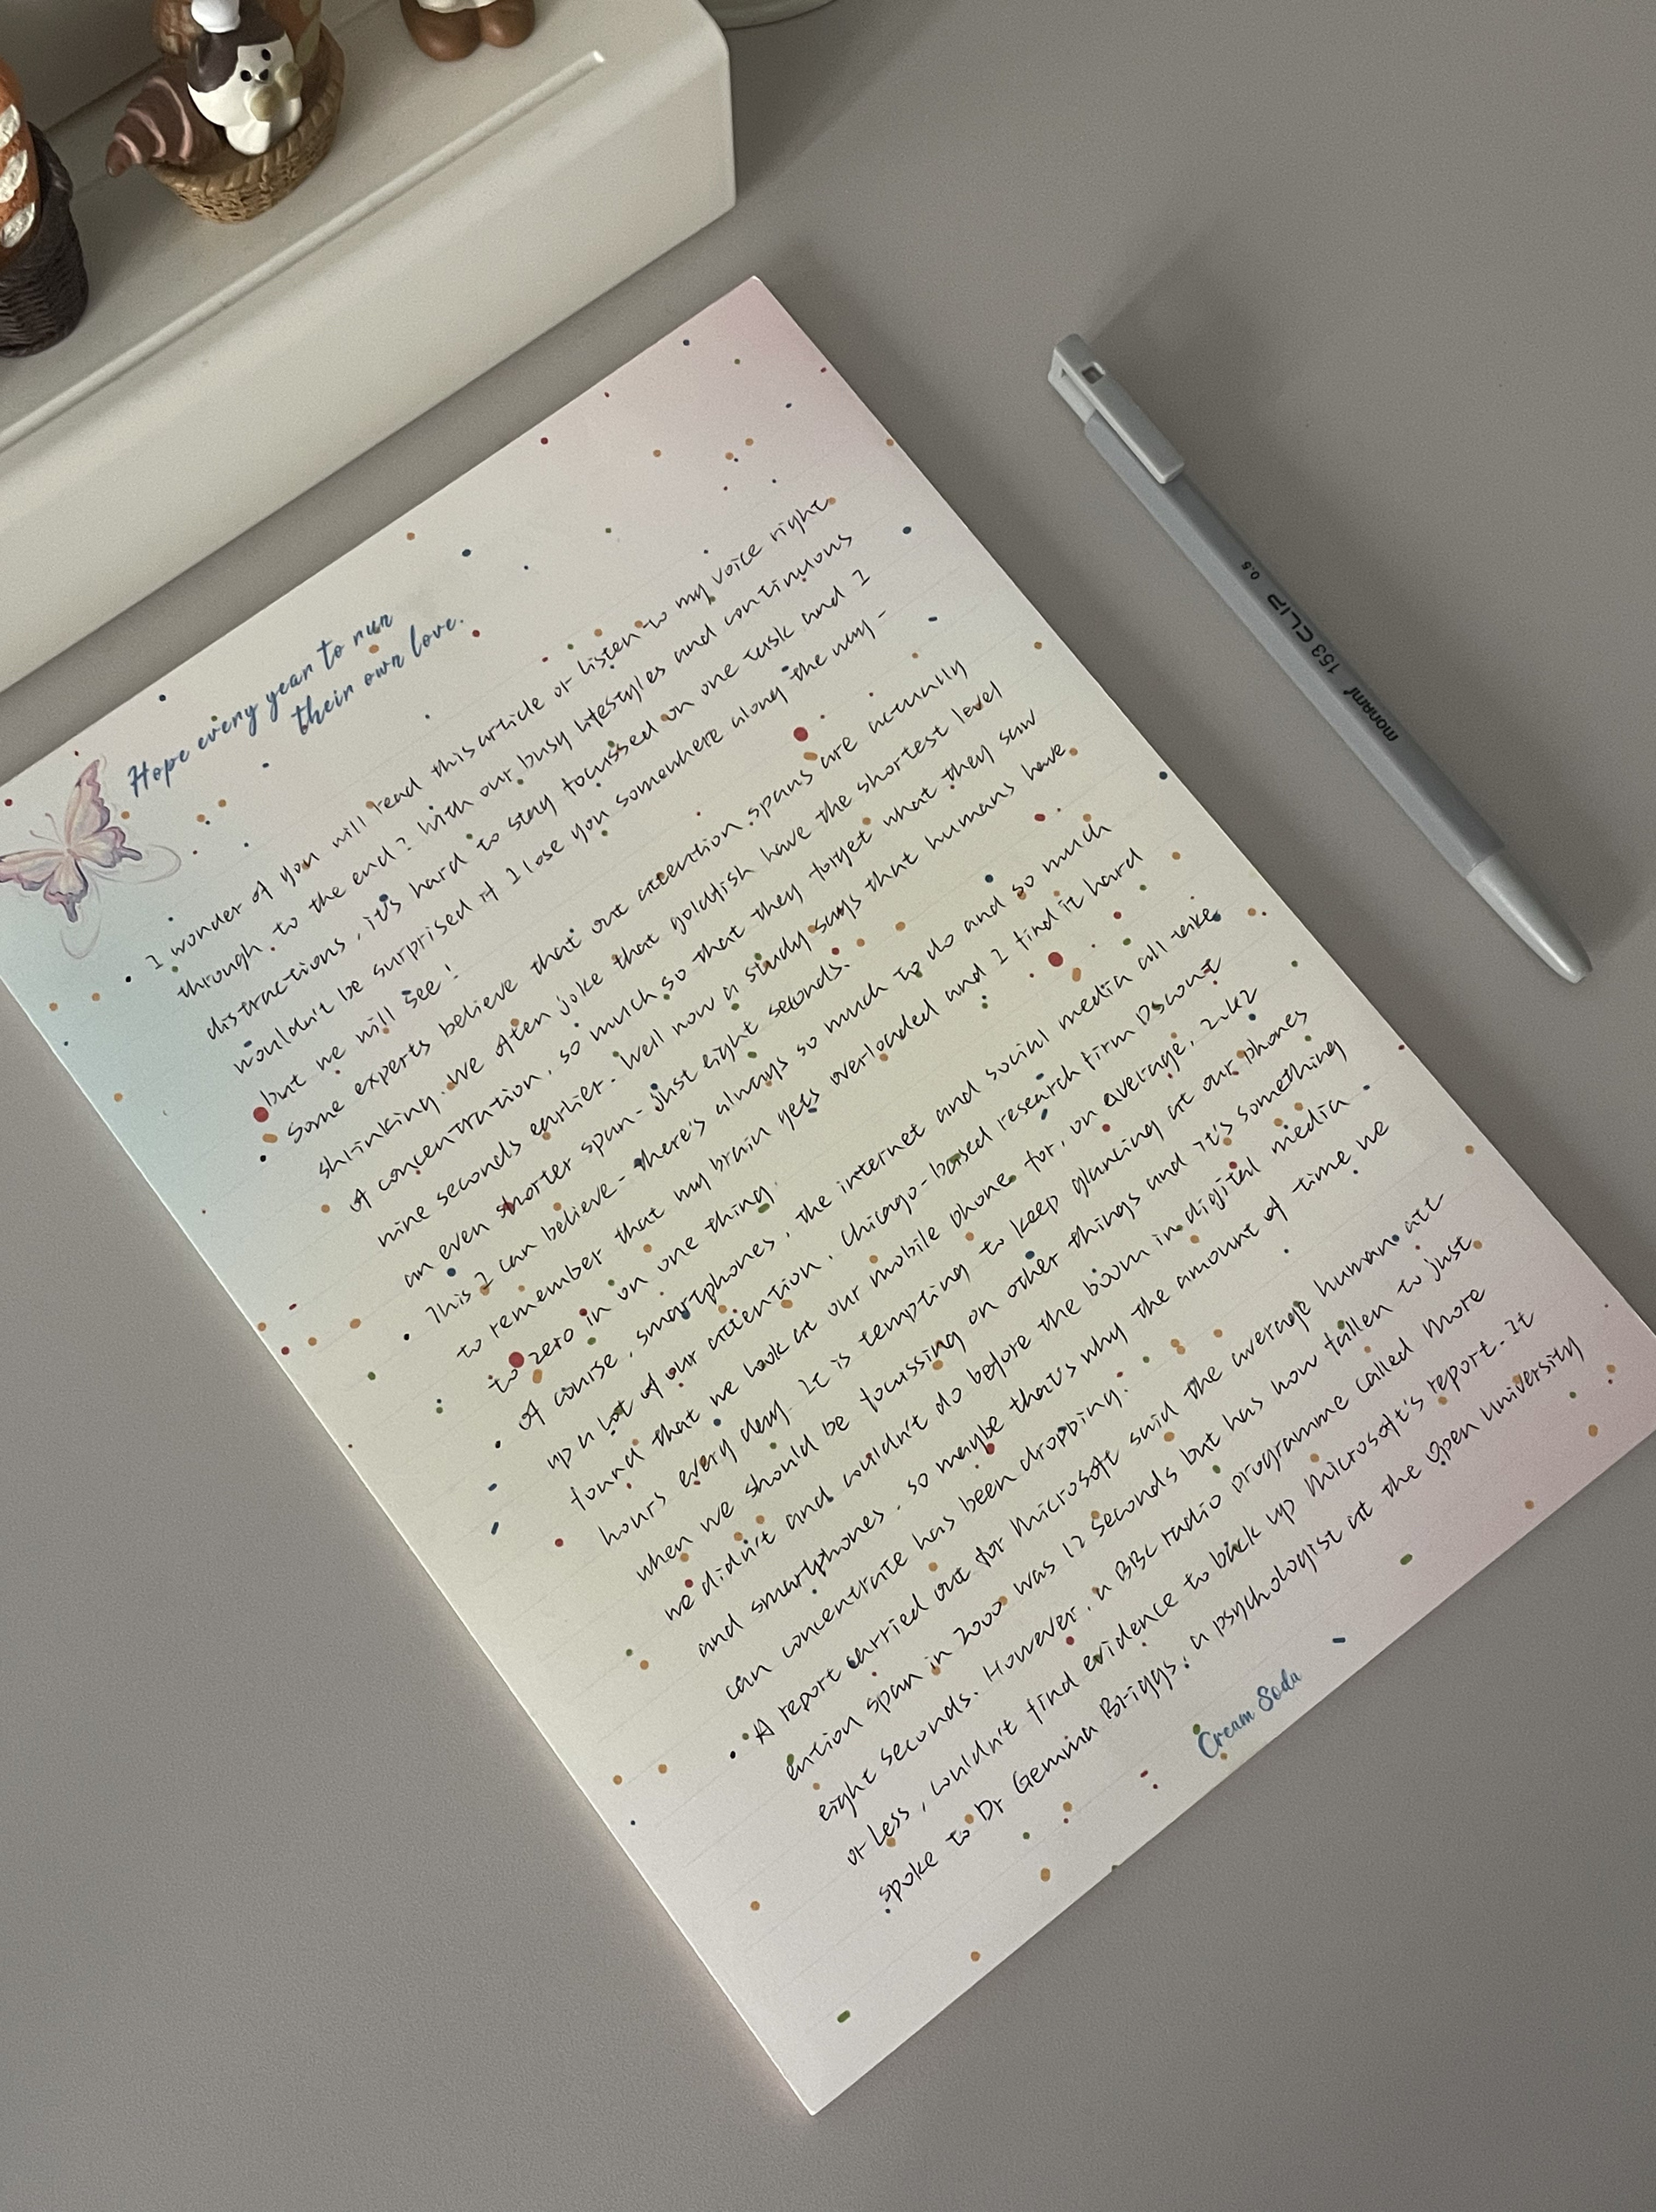 Hope every year to run
their own love.
• I wonder of you will read this article or listen to my voice right
through to the end? With our busy lifestyles and continuous
distractions, it's hard to stay focussed on one task and I
wouldn't be surprised if I lose you somewhere along the way -
but we will see!
• Some experts believe that our attention spans are actually
shrinking. We often joke that goldfish have the shortest level
of concentration, so much so that they forget what they saw
nine seconds earlier. Well now a study says that humans have
an even shorter span - just eight seconds.
• This I can believe - there's always so much to do and so much
to remember that my brain gets overloaded and I find it hard
to zero in on one thing.
• Of course, smartphones, the internet and social media all take
up a lot of our attention. Chicago-based research firm Dscout
found that we look at our mobile phone for, on average, 2.42
hours every day. It is tempting to keep glancing at our phones
when we should be focussing on other things and it's something
we didn't and couldn't do before the boom in digital media
and smartphones. so maybe that's why the amount of time we
can concentrate has been dropping.
• A report carried out for Microsoft said the average human att
ention span in 2000 was 12 seconds but has now fallen to just
eight seconds. However, a BBC radio programme called More
or Less, couldn't find evidence to back up Microsoft's report. It
spoke to Dr Gemma Briggs, a psychologist at the Open University
Cream Soda
monami 153 CLIP 0.5